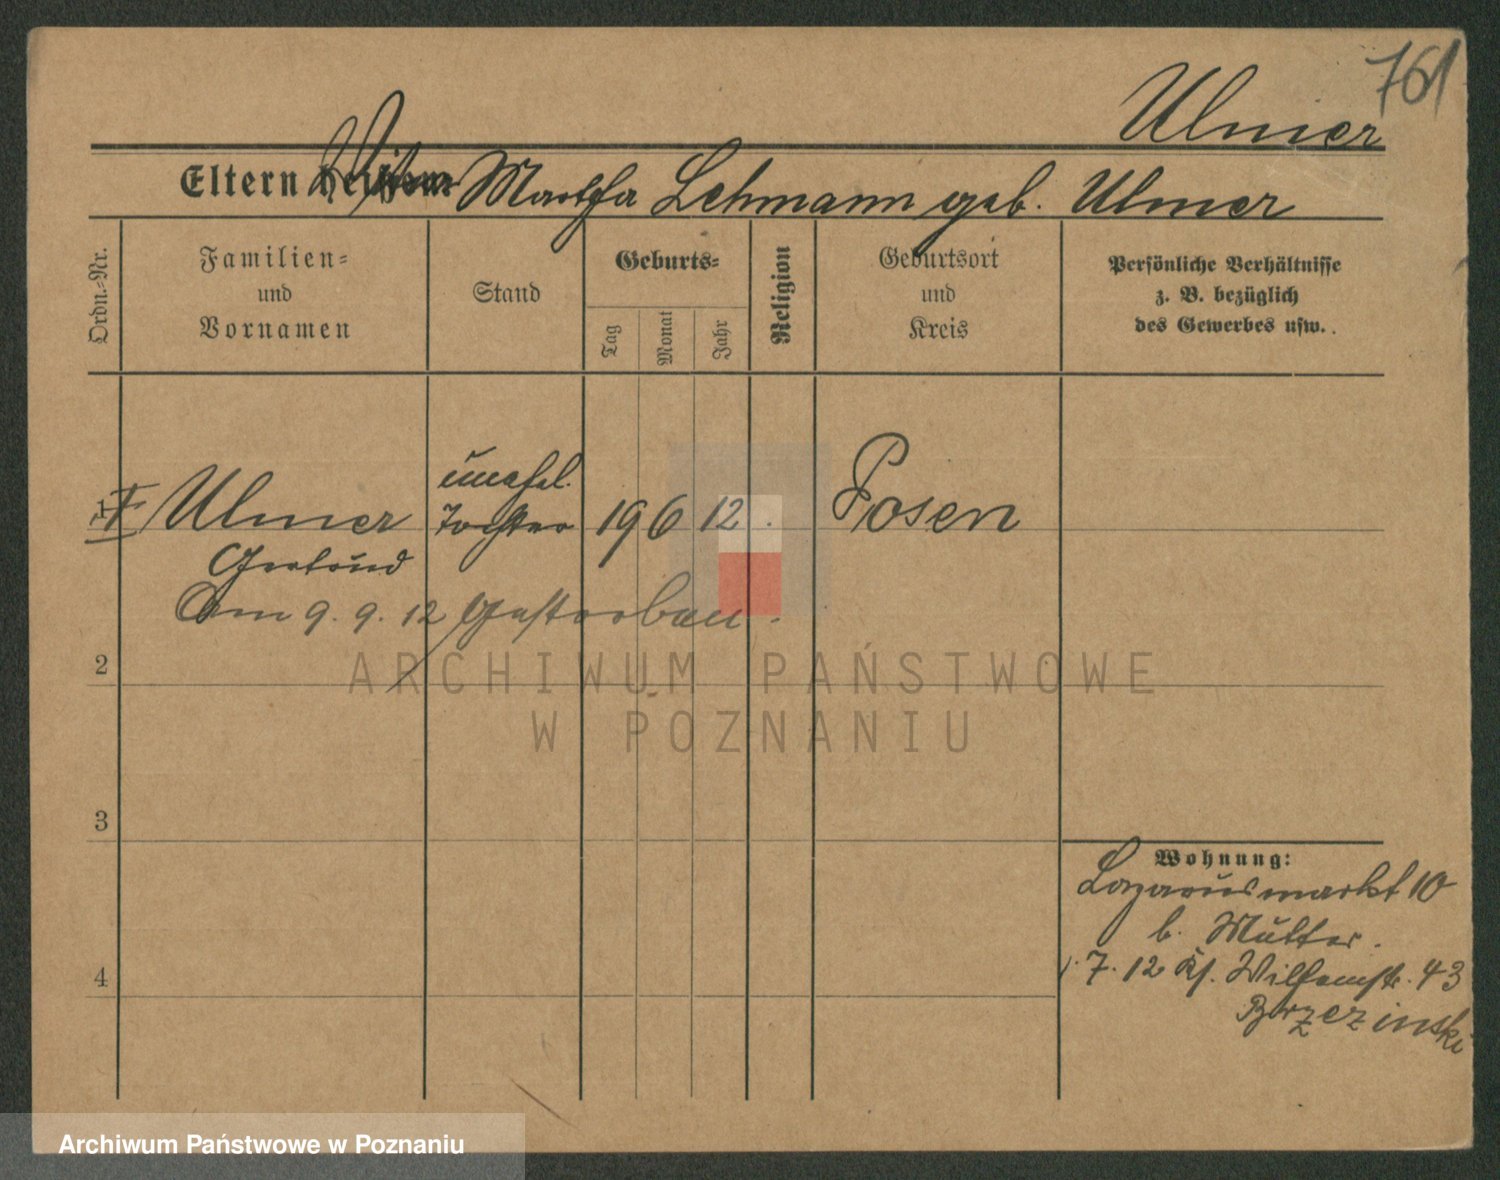 761
Ulmer
Eltern heissen: Witwe Martha Lehmann geb. Ulmer
Ordn.-Nr.
Familien-
und
Vornamen
Stand
Geburts-
Tag
Monat
Jahr
Religion
Geburtsort
und
Kreis
Persönliche Verhältnisse
z. B. bezüglich
des Gewerbes usw.
1
Ulmer
Gertrud
unehel.
Tochter
19 6 12.
Posen
Am 9. 9. 12 gestorben.
2
3
4
Wohnung:
Lazarusmarkt 10
b. Mutter.
7. 12 Kl. Wilhemstr. 43
Brzezinski
ARCHIWUM PAŃSTWOWE
W POZNANIU
Archiwum Państwowe w Poznaniu